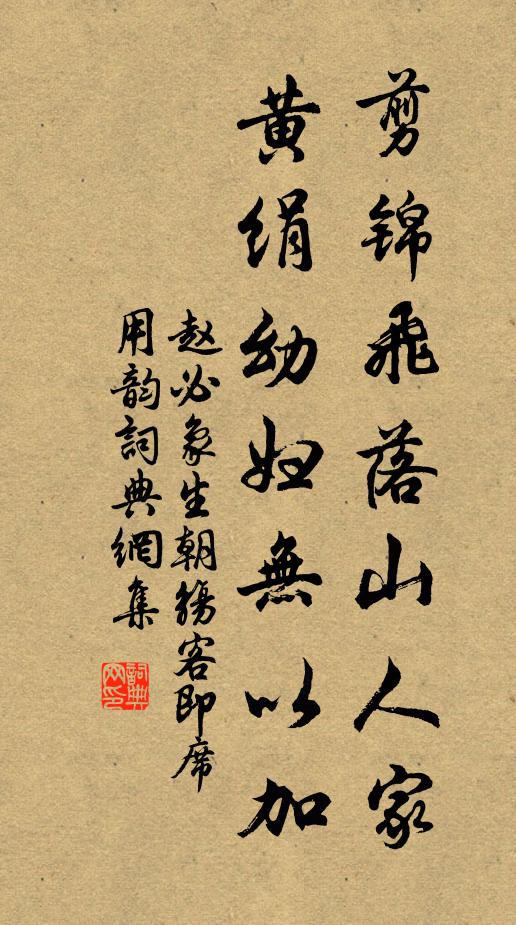 剪锦飛落山人家
黄绢幼妇無以加
赵必象生朝觞客即席
用韵詞典網集
詞典
网印